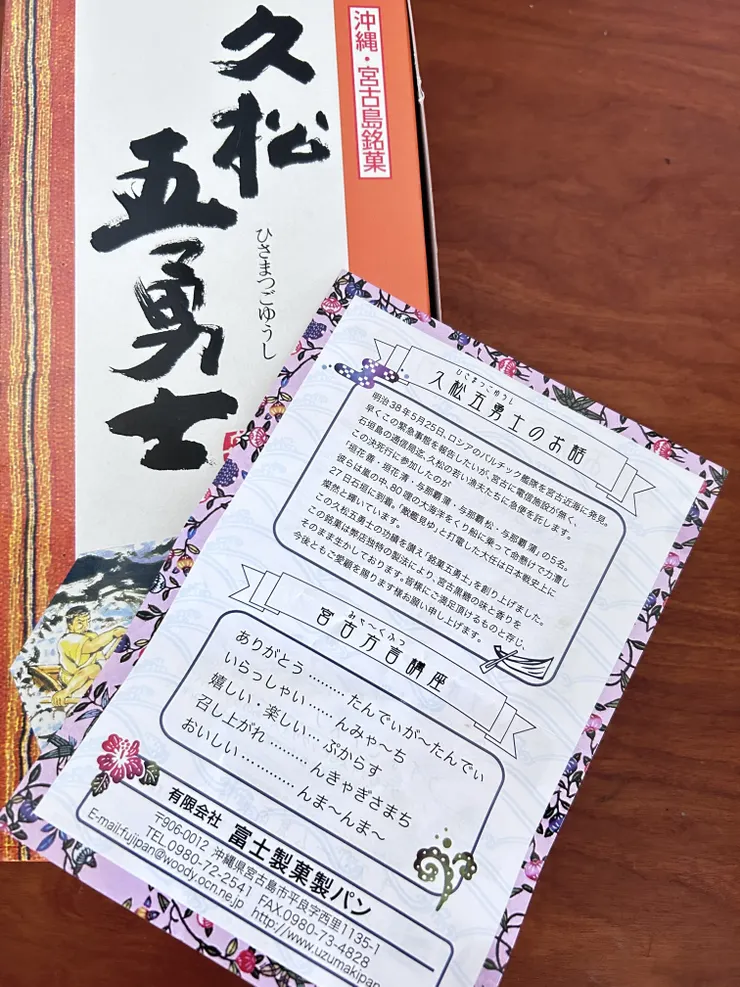 沖縄・宮古島銘菓
久松
五勇士
ひさまつごゆうし
ひさまつごゆうし
久松五勇士のお話
明治38年5月25日、ロシアのバルチック艦隊を宮古近海に発見。
早くこの緊急事態を報告したいが、宮古に電信施設が無く、
石垣島の通信局迄、久松の若い漁夫たちに急便を託します。
この決死行に参加したのが
「垣花善・垣花清・与那覇蒲・与那覇松・与那覇蒲」の5名。
彼らは嵐の中、80哩の大海洋をくり船に乗って命懸けで力漕し
27日石垣に到着。「敵艦見ゆ」と打電した大任は日本戦史上に
燦然と輝いています。
この久松五勇士の功績を讃え「銘菓五勇士」を創り上げました。
この銘菓は弊店独特の製法により、宮古黒糖の味と香りを
そのまま生かしております。皆様にご満足頂けるものと存じ、
今後ともご愛顧を賜ります様お願い申し上げます。
みゃ〜くふつ
宮古方言講座
ありがとう ……… たんでぃが〜たんでぃ
いらっしゃい …… んみゃ〜ち
嬉しい・楽しい… ぷからす
召し上がれ ……… んきゃぎさまち
おいしい ………… んま〜んま〜
有限会社 富士製菓製パン
〒906-0012 沖縄県宮古島市平良字西里1135-1
TEL.0980-72-2541 FAX.0980-73-4828
E-mail:fujipan@woody.ocn.ne.jp http://www.uzumakipan